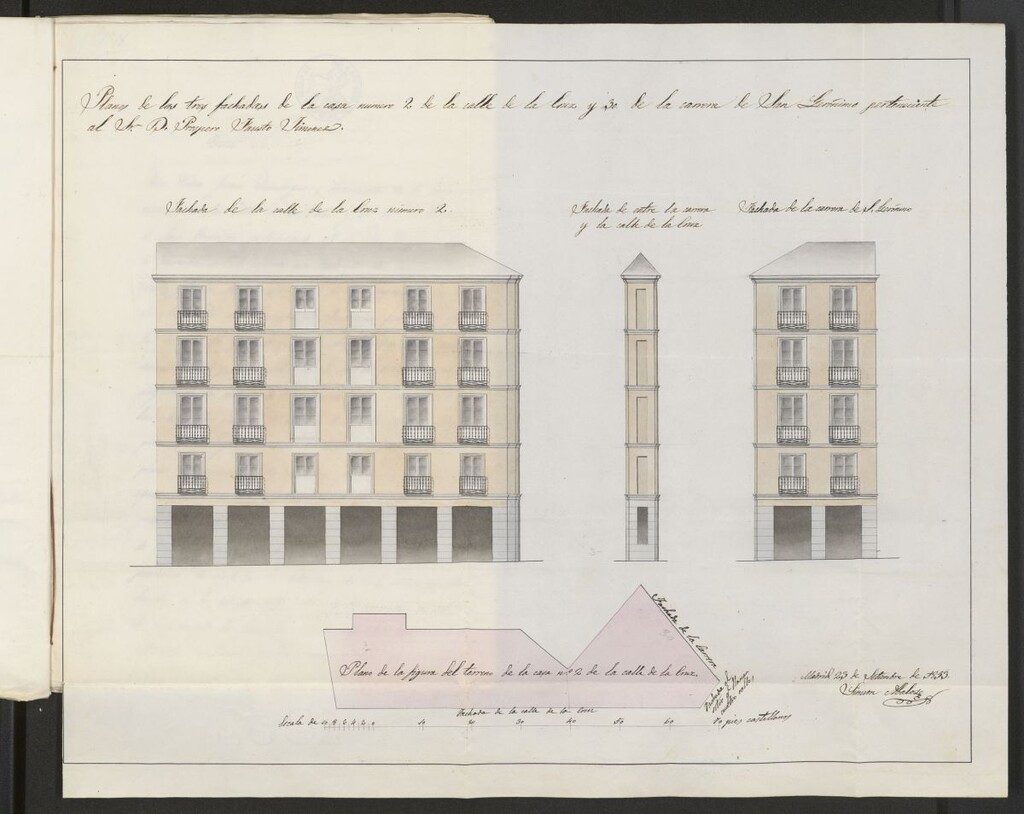 Planos de las tres fachadas de la casa numero 2 de la calle de la Cruz y 30 de la carrera de San Gerónimo perteneciente
al Sr. D. Prospero Fausto Jimenez.
Fachada de la calle de la Cruz número 2.
Fachada de entre la carrera
y la calle de la Cruz
Fachada de la carrera de S. Gerónimo
Fachada de la Carrera
Plano de la figura del terreno de la casa nº 2 de la calle de la Cruz.
Fachada
calles
Madrid 23 de Setiembre de 1853.
Simeon
Fachada de la calle de la Cruz
Escala de 10 20 30 40 50 60 70 pies castellanos